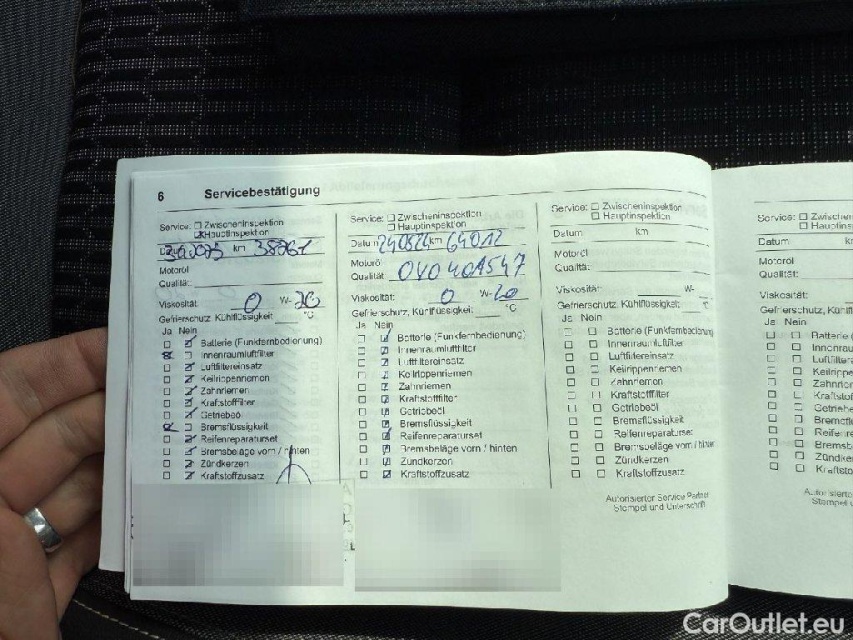 6 Servicebestätigung
Service: Zwischeninspektion
Hauptinspektion
km 38261
Motoröl
Qualität:
Viskosität: 0 W- 20
Gefrierschutz, Kühlflüssigkeit °C
Ja Nein
Batterie (Funkfernbedienung)
Innenraumluftfilter
Luftfiltereinsatz
Keilrippenriemen
Zahnriemen
Kraftstofffilter
Getriebeöl
Bremsflüssigkeit
Reifenreparaturset
Bremsbeläge vorn / hinten
Zündkerzen
Kraftstoffzusatz
Service: Zwischeninspektion
Hauptinspektion
Datum 240824 km 64012
Motoröl
Qualität 040401547
Viskosität: 0 W- 20
Gefrierschutz, Kühlflüssigkeit °C
Ja Nein
Batterie (Funkfernbedienung)
Innenraumluftfilter
Luftfiltereinsatz
Keilrippenriemen
Zahnriemen
Kraftstofffilter
Getriebeöl
Bremsflüssigkeit
Reifenreparaturset
Bremsbeläge vorn / hinten
Zündkerzen
Kraftstoffzusatz
Service: Zwischeninspektion
Hauptinspektion
Datum km
Motoröl
Qualität:
Viskosität: W-
Gefrierschutz, Kühlflüssigkeit °C
Ja Nein
Batterie (Funkfernbedienung
Innenraumluftfilter
Luftfiltereinsatz
Keilrippenriemen
Zahnriemen
Kraftstofffilter
Getriebeöl
Bremsflüssigkeit
Reifenreparaturset
Bremsbeläge vorn / hinten
Zündkerzen
Kraftstoffzusatz
Autorisierter Service Partner
Stempel und Unterschrift
Service: Zwischen
Hauptins
Datum km
Motoröl
Qualität:
Viskosität:
Gefrierschutz, Kühl
Ja Nein
Batterie
Innenra
Luftfilte
Keilrippe
Zahnrie
Kraftstof
Getriebe
Bremsfl
Reifenre
Bremsb
Zündke
Kraftsto
Autorisier
Stempel u
CarOutlet.eu